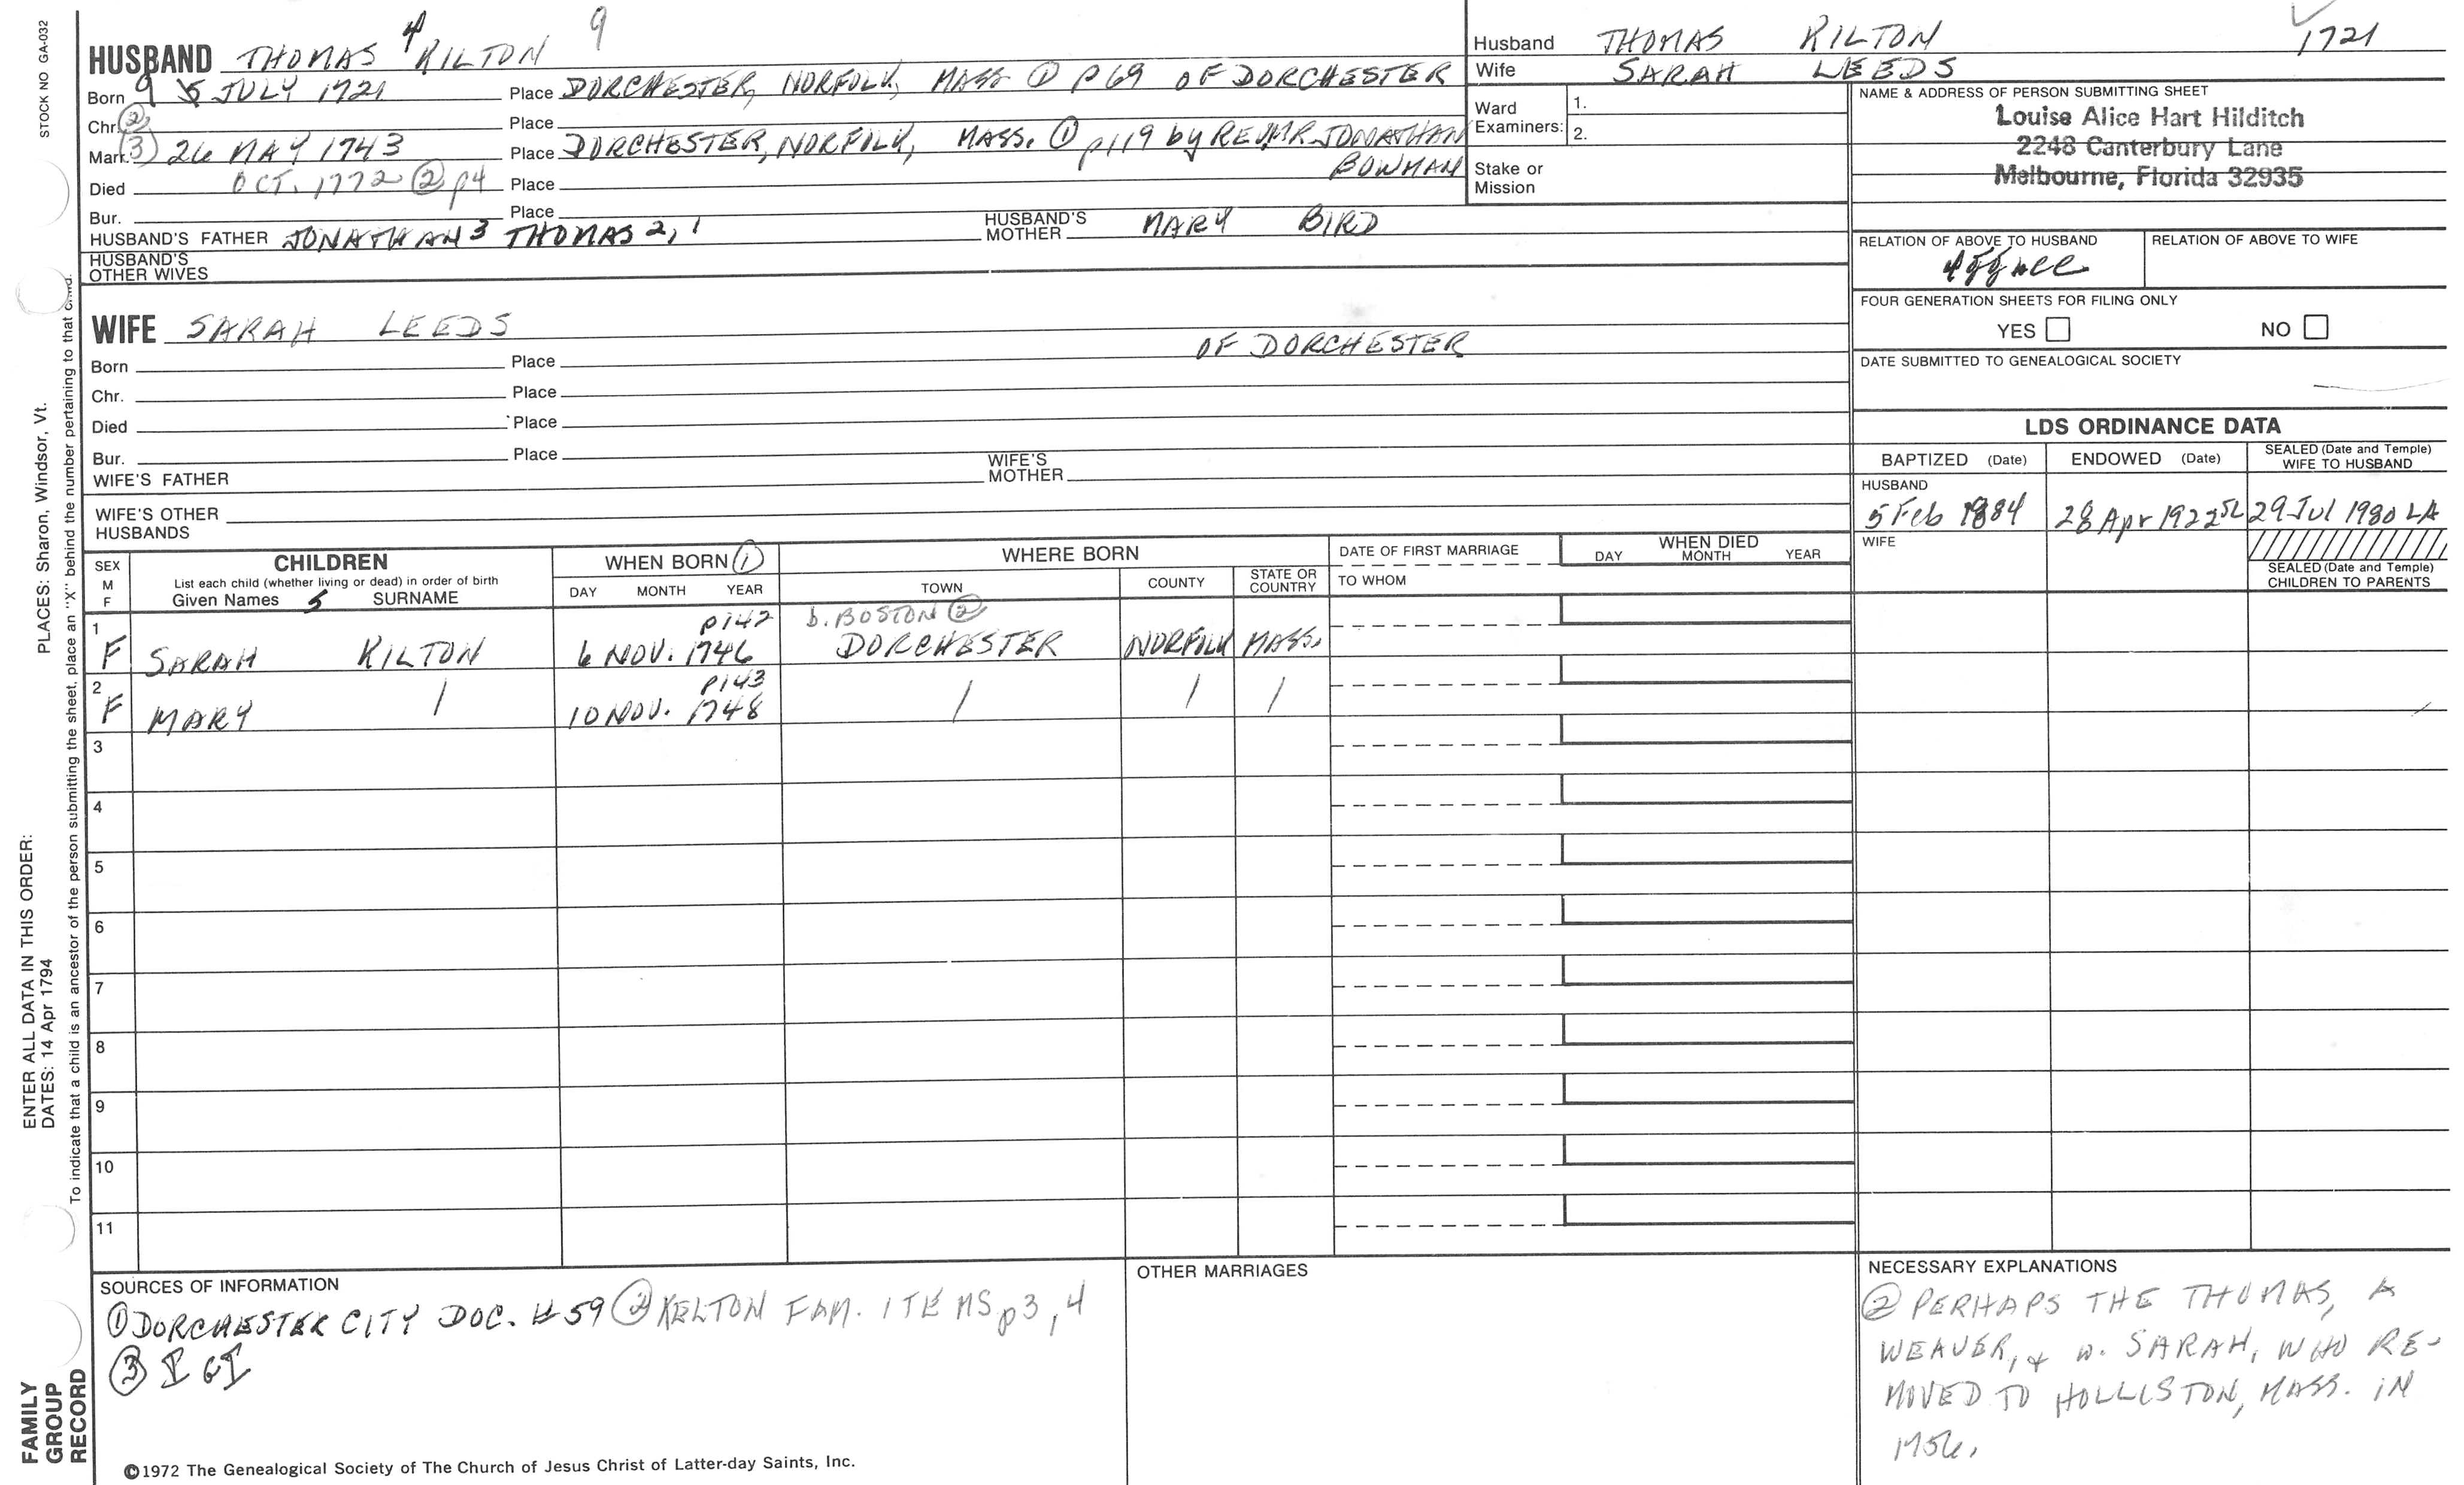 STOCK NO GA-032
HUSBAND THOMAS 4 KILTON 9
Born 9 5 JULY 1721 Place DORCHESTER, NORFOLK, MASS ① p 69 OF DORCHESTER
Chr. ② Place
Marr. ③ 26 MAY 1743 Place DORCHESTER, NORFOLK, MASS. ① p119 by REV.MR. JONATHAN
BOWMAN
Died OCT. 1772 ② p4 Place
Bur. Place
HUSBAND'S FATHER JONATHAN 3 THOMAS 2, 1 HUSBAND'S MOTHER MARY BIRD
HUSBAND'S
OTHER WIVES
WIFE SARAH LEEDS
OF DORCHESTER
Born Place
Chr. Place
Died Place
Bur. Place
WIFE'S FATHER WIFE'S MOTHER
WIFE'S OTHER
HUSBANDS
Husband THOMAS KILTON 1721
Wife SARAH LEEDS
Ward
Examiners: 1.
2.
Stake or
Mission
NAME & ADDRESS OF PERSON SUBMITTING SHEET
Louise Alice Hart Hilditch
2248 Canterbury Lane
Melbourne, Florida 32935
RELATION OF ABOVE TO HUSBAND RELATION OF ABOVE TO WIFE
FOUR GENERATION SHEETS FOR FILING ONLY
YES NO
DATE SUBMITTED TO GENEALOGICAL SOCIETY
LDS ORDINANCE DATA
BAPTIZED (Date) ENDOWED (Date) SEALED (Date and Temple)
WIFE TO HUSBAND
HUSBAND
5 Feb 1884 28 Apr 1922 SL 29 Jul 1980 LA
WIFE
SEALED (Date and Temple)
CHILDREN TO PARENTS
SEX
M
F
CHILDREN
List each child (whether living or dead) in order of birth
Given Names 5 SURNAME
WHEN BORN ①
DAY MONTH YEAR
WHERE BORN
TOWN COUNTY STATE OR
COUNTRY
DATE OF FIRST MARRIAGE
TO WHOM
WHEN DIED
DAY MONTH YEAR
p142 b. BOSTON ②
1 F SARAH KILTON 6 NOV. 1746 DORCHESTER NORFOLK MASS.
p143
2 F MARY / 10 NOV. 1748 / / /
3
4
5
6
7
8
9
10
11
SOURCES OF INFORMATION
① DORCHESTER CITY DOC. # 59 ② KELTON FAM. ITEMS p3, 4
③ IGI
OTHER MARRIAGES
NECESSARY EXPLANATIONS
② PERHAPS THE THOMAS, A
WEAVER, & W. SARAH, WHO RE-
MOVED TO HOLLISTON, MASS. IN
1756.
©1972 The Genealogical Society of The Church of Jesus Christ of Latter-day Saints, Inc.
PLACES: Sharon, Windsor, Vt.
ENTER ALL DATA IN THIS ORDER:
DATES: 14 Apr 1794
To indicate that a child is an ancestor of the person submitting the sheet, place an "X" behind the number pertaining to that child.
FAMILY
GROUP
RECORD